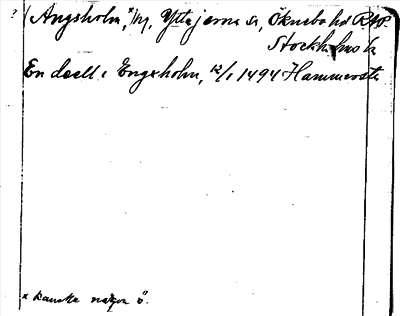 ? (Ängsholm,ˣ) Hg, Ytterjärna sn, Öknebo hd RAP.
Stockholms l.
En deell i Engxholm, 12/1 1494 Hammersta
x kanske någon ö.